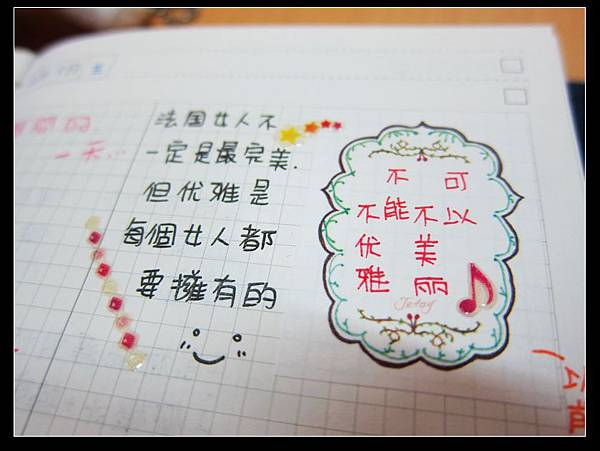 一天...
法国女人不
一定是最完美.
但优雅是
每個女人都
要擁有的
可以
不美丽
不能
不优雅
Jetoy